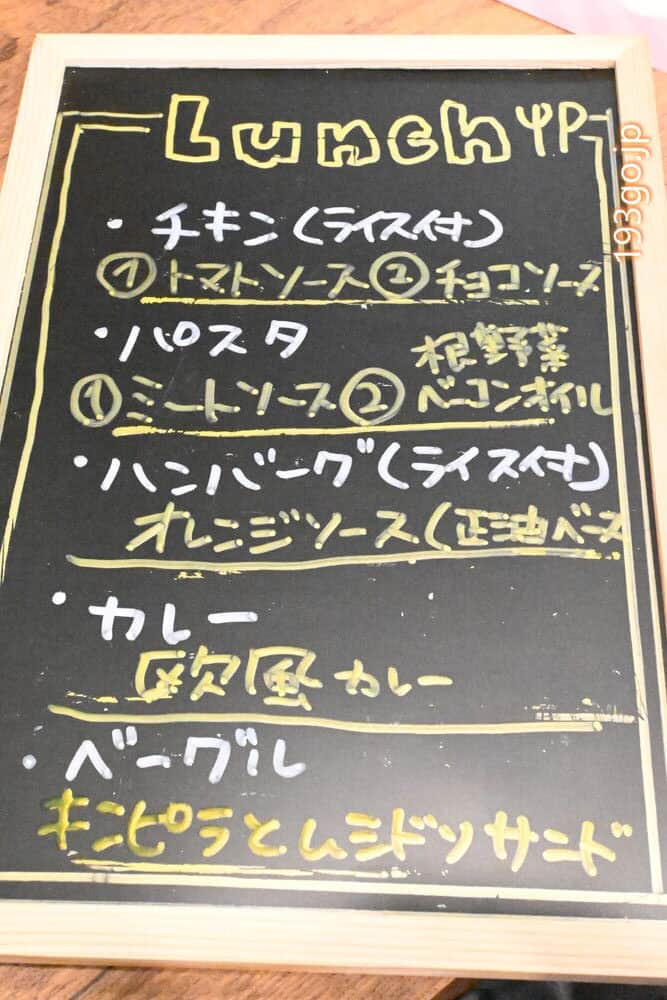 Lunch
・チキン(ライス付)
①トマトソース②チョコソース
・パスタ
根野菜
①ミートソース②ベーコンオイル
・ハンバーグ(ライス付)
オレンジソース(正油ベース
・カレー
欧風カレー
・ベーグル
キンピラとムシドリサンド
193go.jp